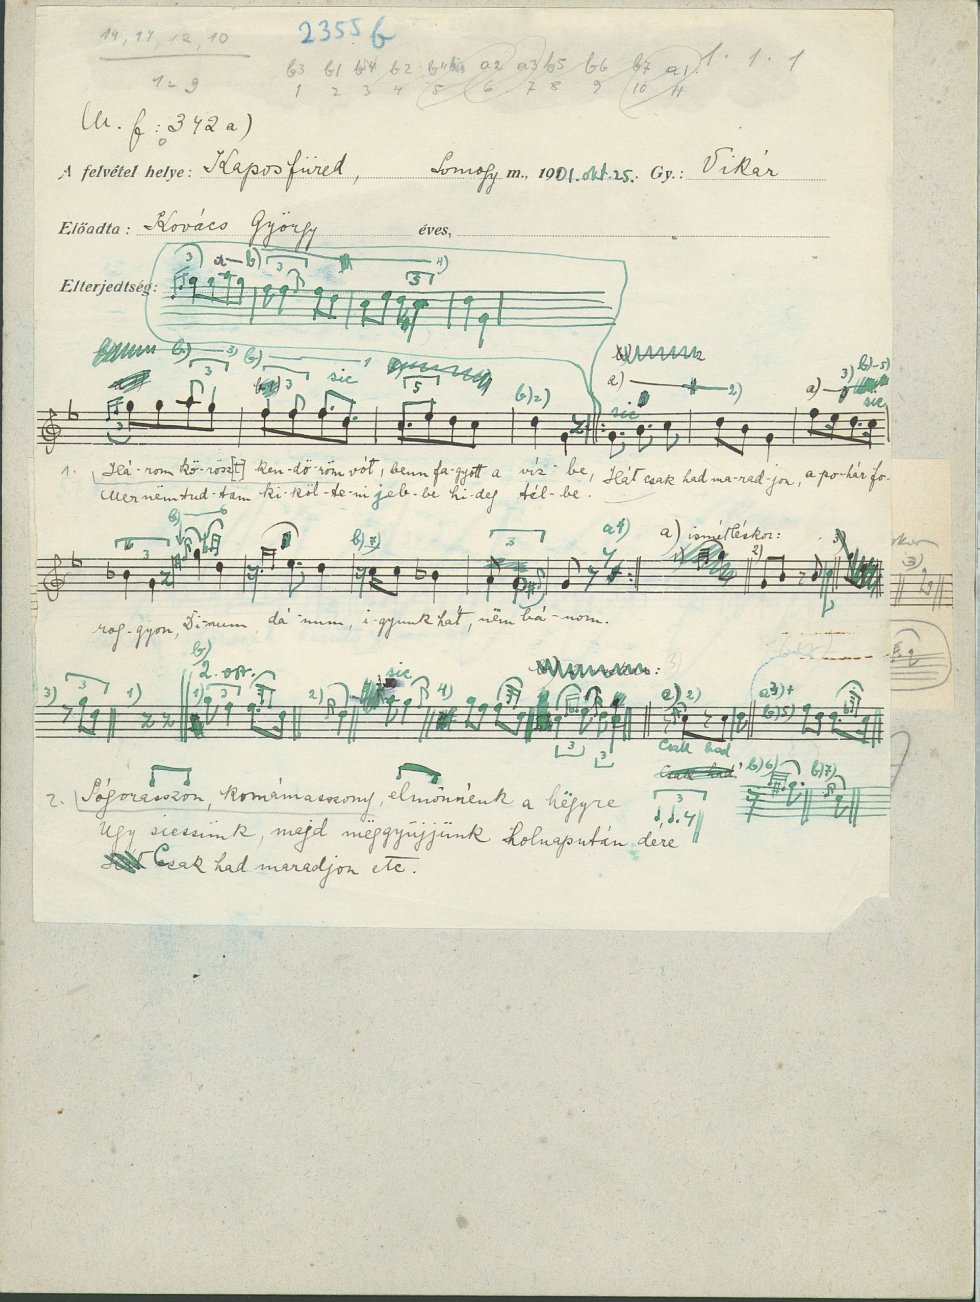 14, 14, 12, 10
2355 b
1 - 9
b3 b1 b4 b2 a2 a3 b5 b6 b7 a1
1 2 3 4 5 6 7 8 9 10 11
1. 1. 1
M. f: 342 a)
A felvétel helye: Kaposfüred, Somogy m., 1901. okt. 25. Gy.: Vikár
Előadta: Kovács György éves,
Elterjedtség:
3) a — b) 3 4) 5
b) 3) b) 1 a)
3 3 sic 5 b) 2) a) 2) sic a) 3) b) 5) sic
1. Há-rom kö-rösz[t] ken-dö-röm vót, benn fa-gyott a víz-be, Hát csak had ma-rad-jon, a po-hár fo-
Mer nëm tud-tam ki-köl-te-ni jeb-be hi-deg tél-be.
b) 6 b) 7) 3 a 4) a) ismétléskor: 1) 2) 3)
3
rog-gyon, Di-num, dá-num, i-gyunk hát, nëm bá-nom.
b)
2. vsz.
3) 3 1) 1) 3 2) sic 4) 3) a) 2) b) 5)
Csak had
b) 6) b) 7)
2. Sógorasszon, komámasszony, elmönnénk a hëgyre
Úgy siessünk, majd mëggyüjjünk holnapután dére
Csak had maradjon etc.